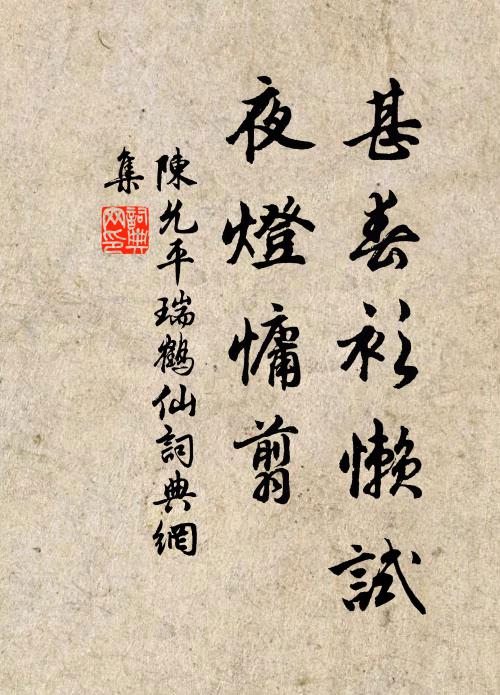 甚春衫懶試
夜燈慵翦
陳允平瑞鶴仙詞典網
集
詞典網印